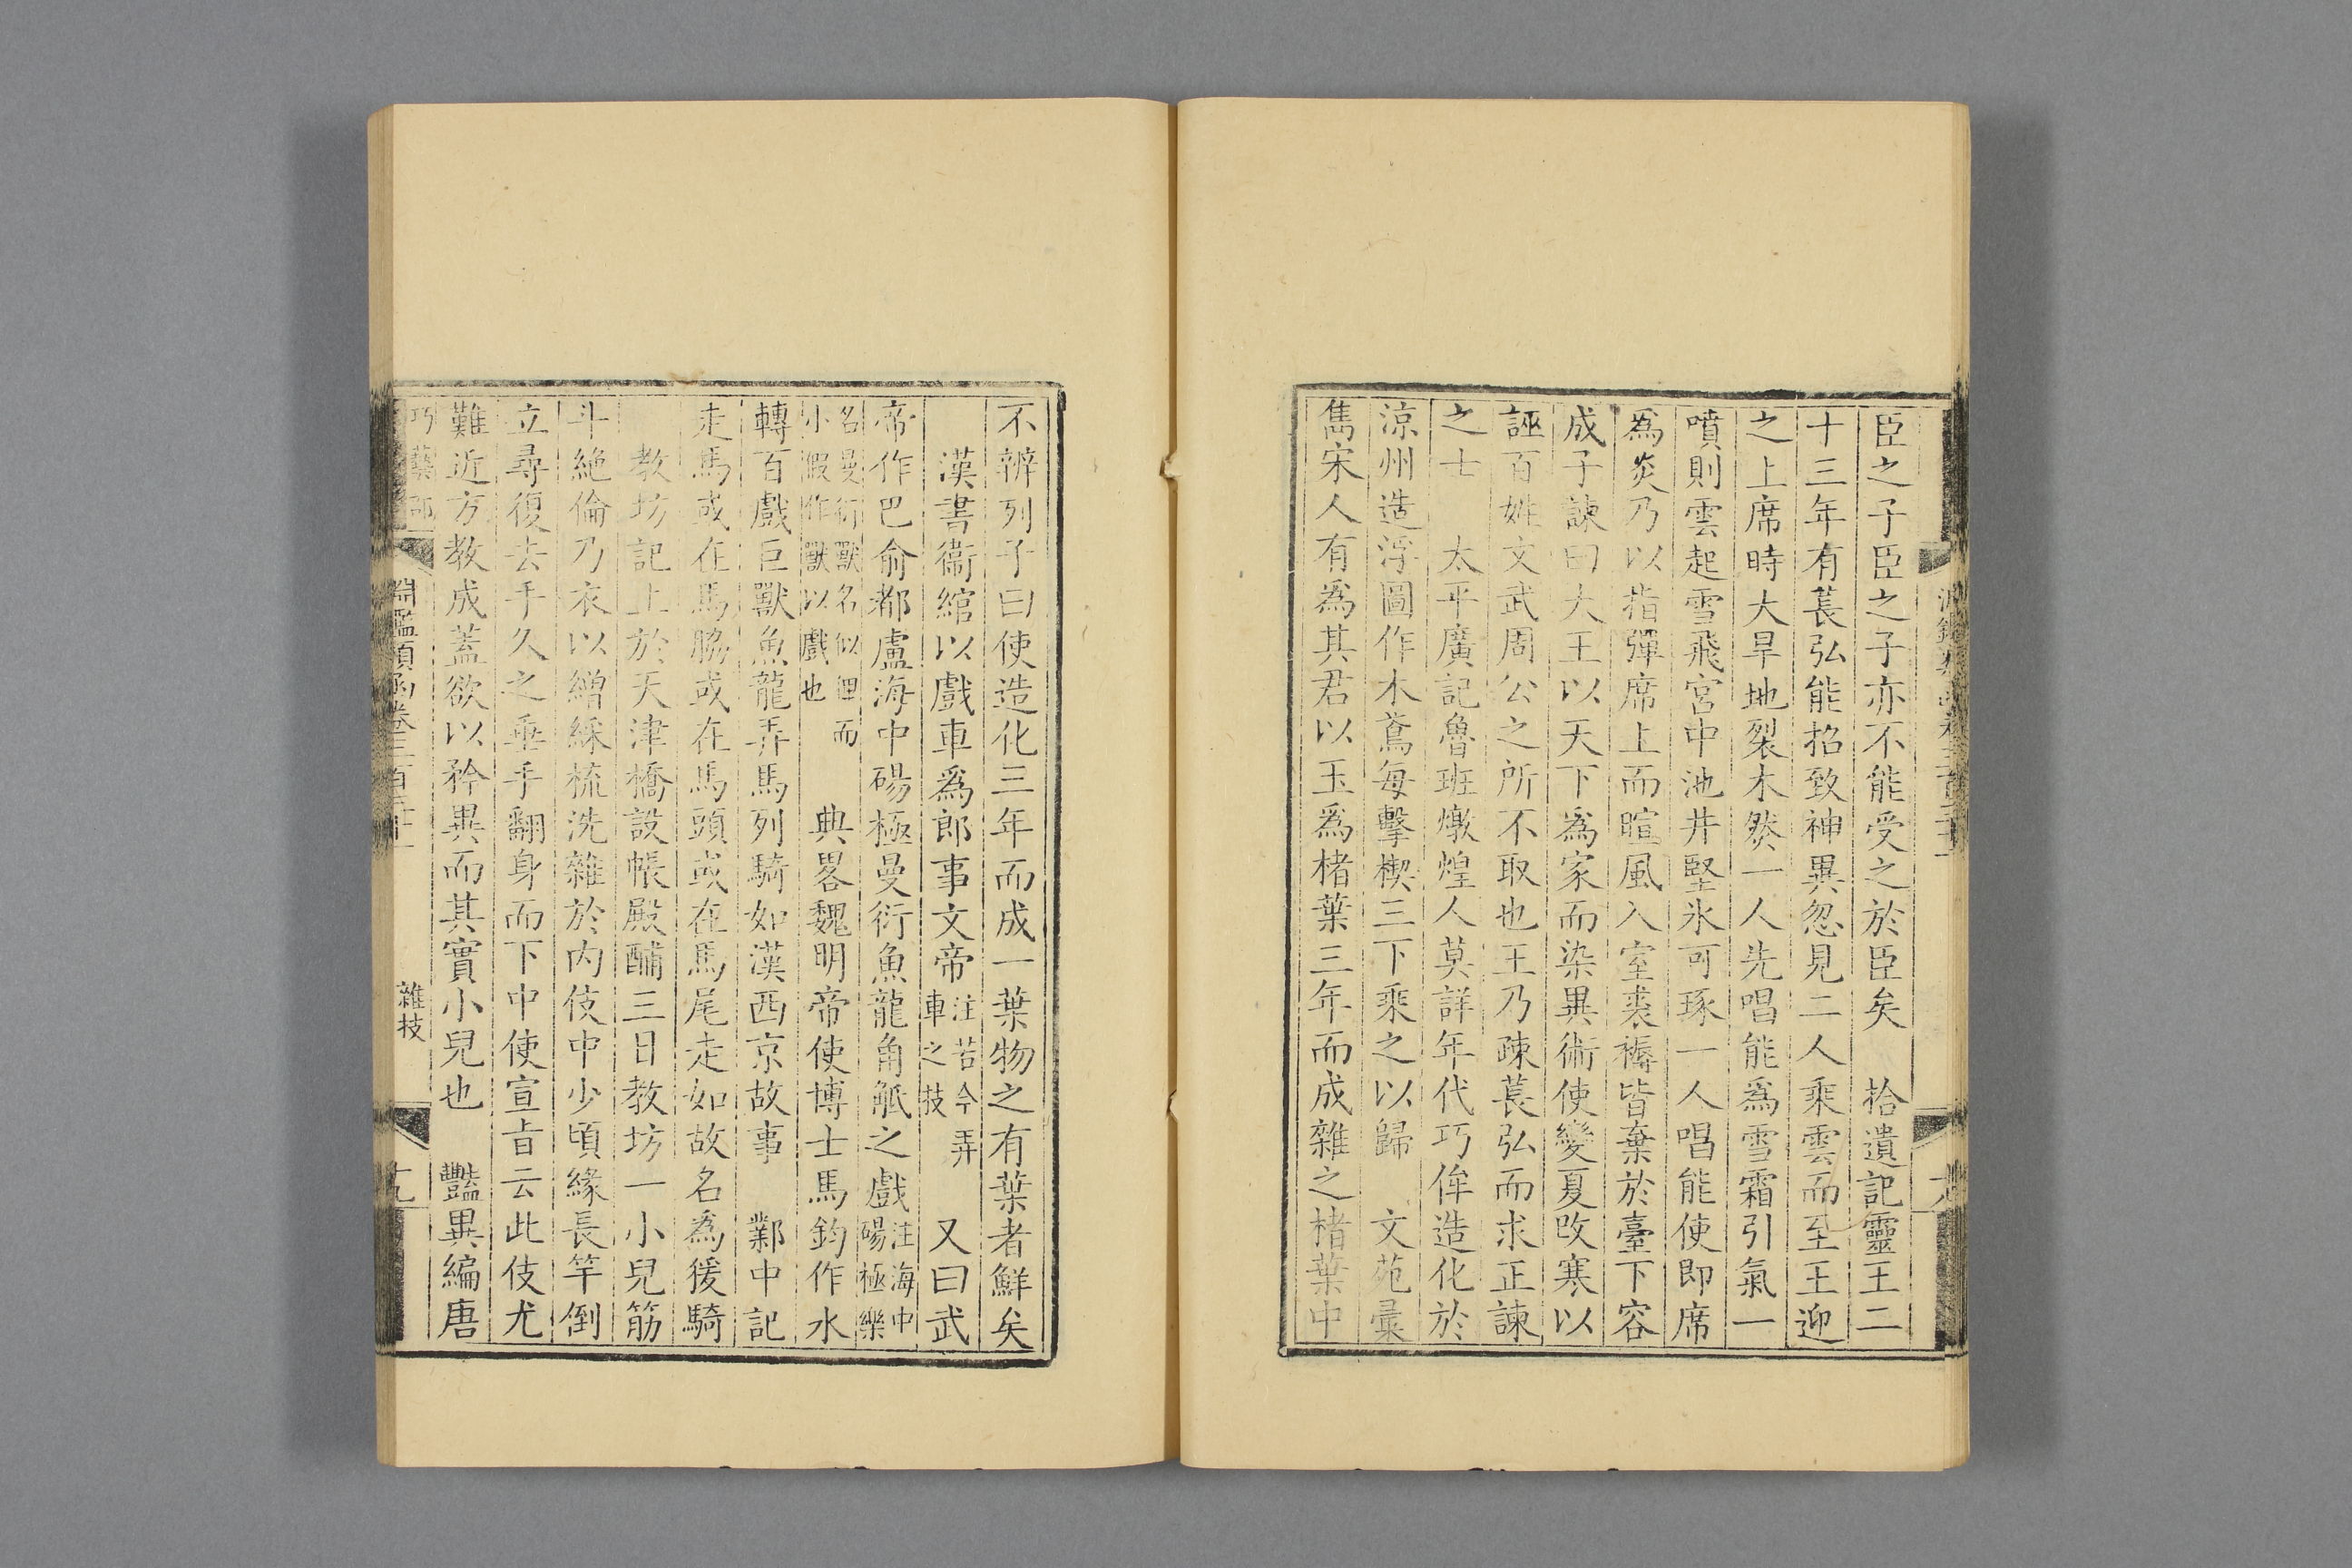 臣之子臣之子亦不能受之於臣矣　拾遺記靈王二
十三年有萇弘能招致神異忽見二人乘雲而至王迎
之上席時大旱地裂木然一人先唱能爲雪霜引氣一
噴則雲起雪飛宮中池井堅氷可琢一人唱能使即席
爲炎乃以指彈席上而暄風入室裘褥皆棄於臺下容
成子諫曰大王以天下爲家而染異術使變夏改寒以
誣百姓文武周公之所不取也王乃疎萇弘而求正諫
之士　太平廣記魯班燉煌人莫詳年代巧侔造化於
涼州造浮圖作木鳶每擊楔三下乘之以歸　文苑彙
雋宋人有爲其君以玉爲楮葉三年而成雜之楮葉中
不辨列子曰使造化三年而成一葉物之有葉者鮮矣
漢書衞綰以戲車爲郎事文帝注若今弄車之技　又曰武
帝作巴俞都盧海中碭極曼衍魚龍角觝之戲注海中碭極樂
名曼衍獸名似狸而小假作獸以戲也　典畧魏明帝使博士馬鈞作水
轉百戲巨獸魚龍弄馬列騎如漢西京故事　鄴中記
走馬或在馬脇或在馬頭或在馬尾走如故名爲猨騎
教坊記上於天津橋設帳殿酺三日教坊一小兒筋
斗絶倫乃衣以繒綵梳洗雜於内伎中少頃緣長竿倒
立尋復去手久之垂手翻身而下中使宣旨云此伎尤
難近方教成蓋欲以矜異而其實小兒也　豔異編唐
巧藝部
淵鑑類函卷三百二十一
雜技
十九